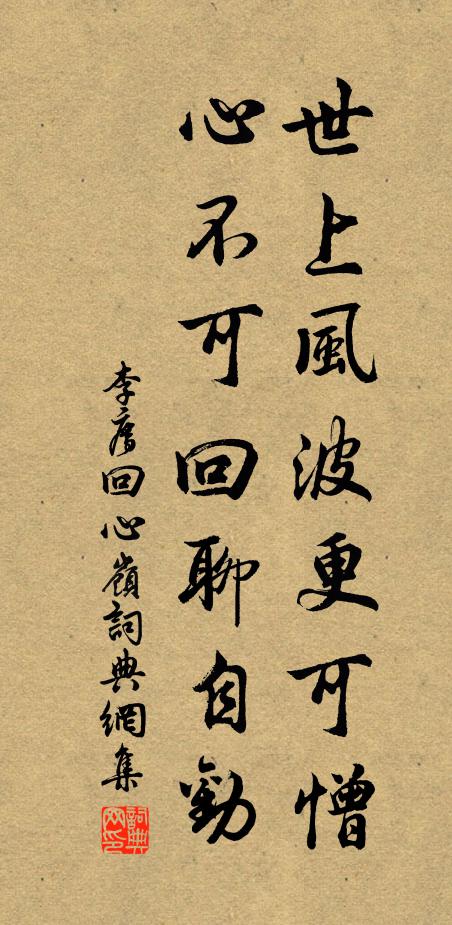 世上風波更可憎
心不可回聊自勸
李廌回心嶺詞典網集
詞典網印